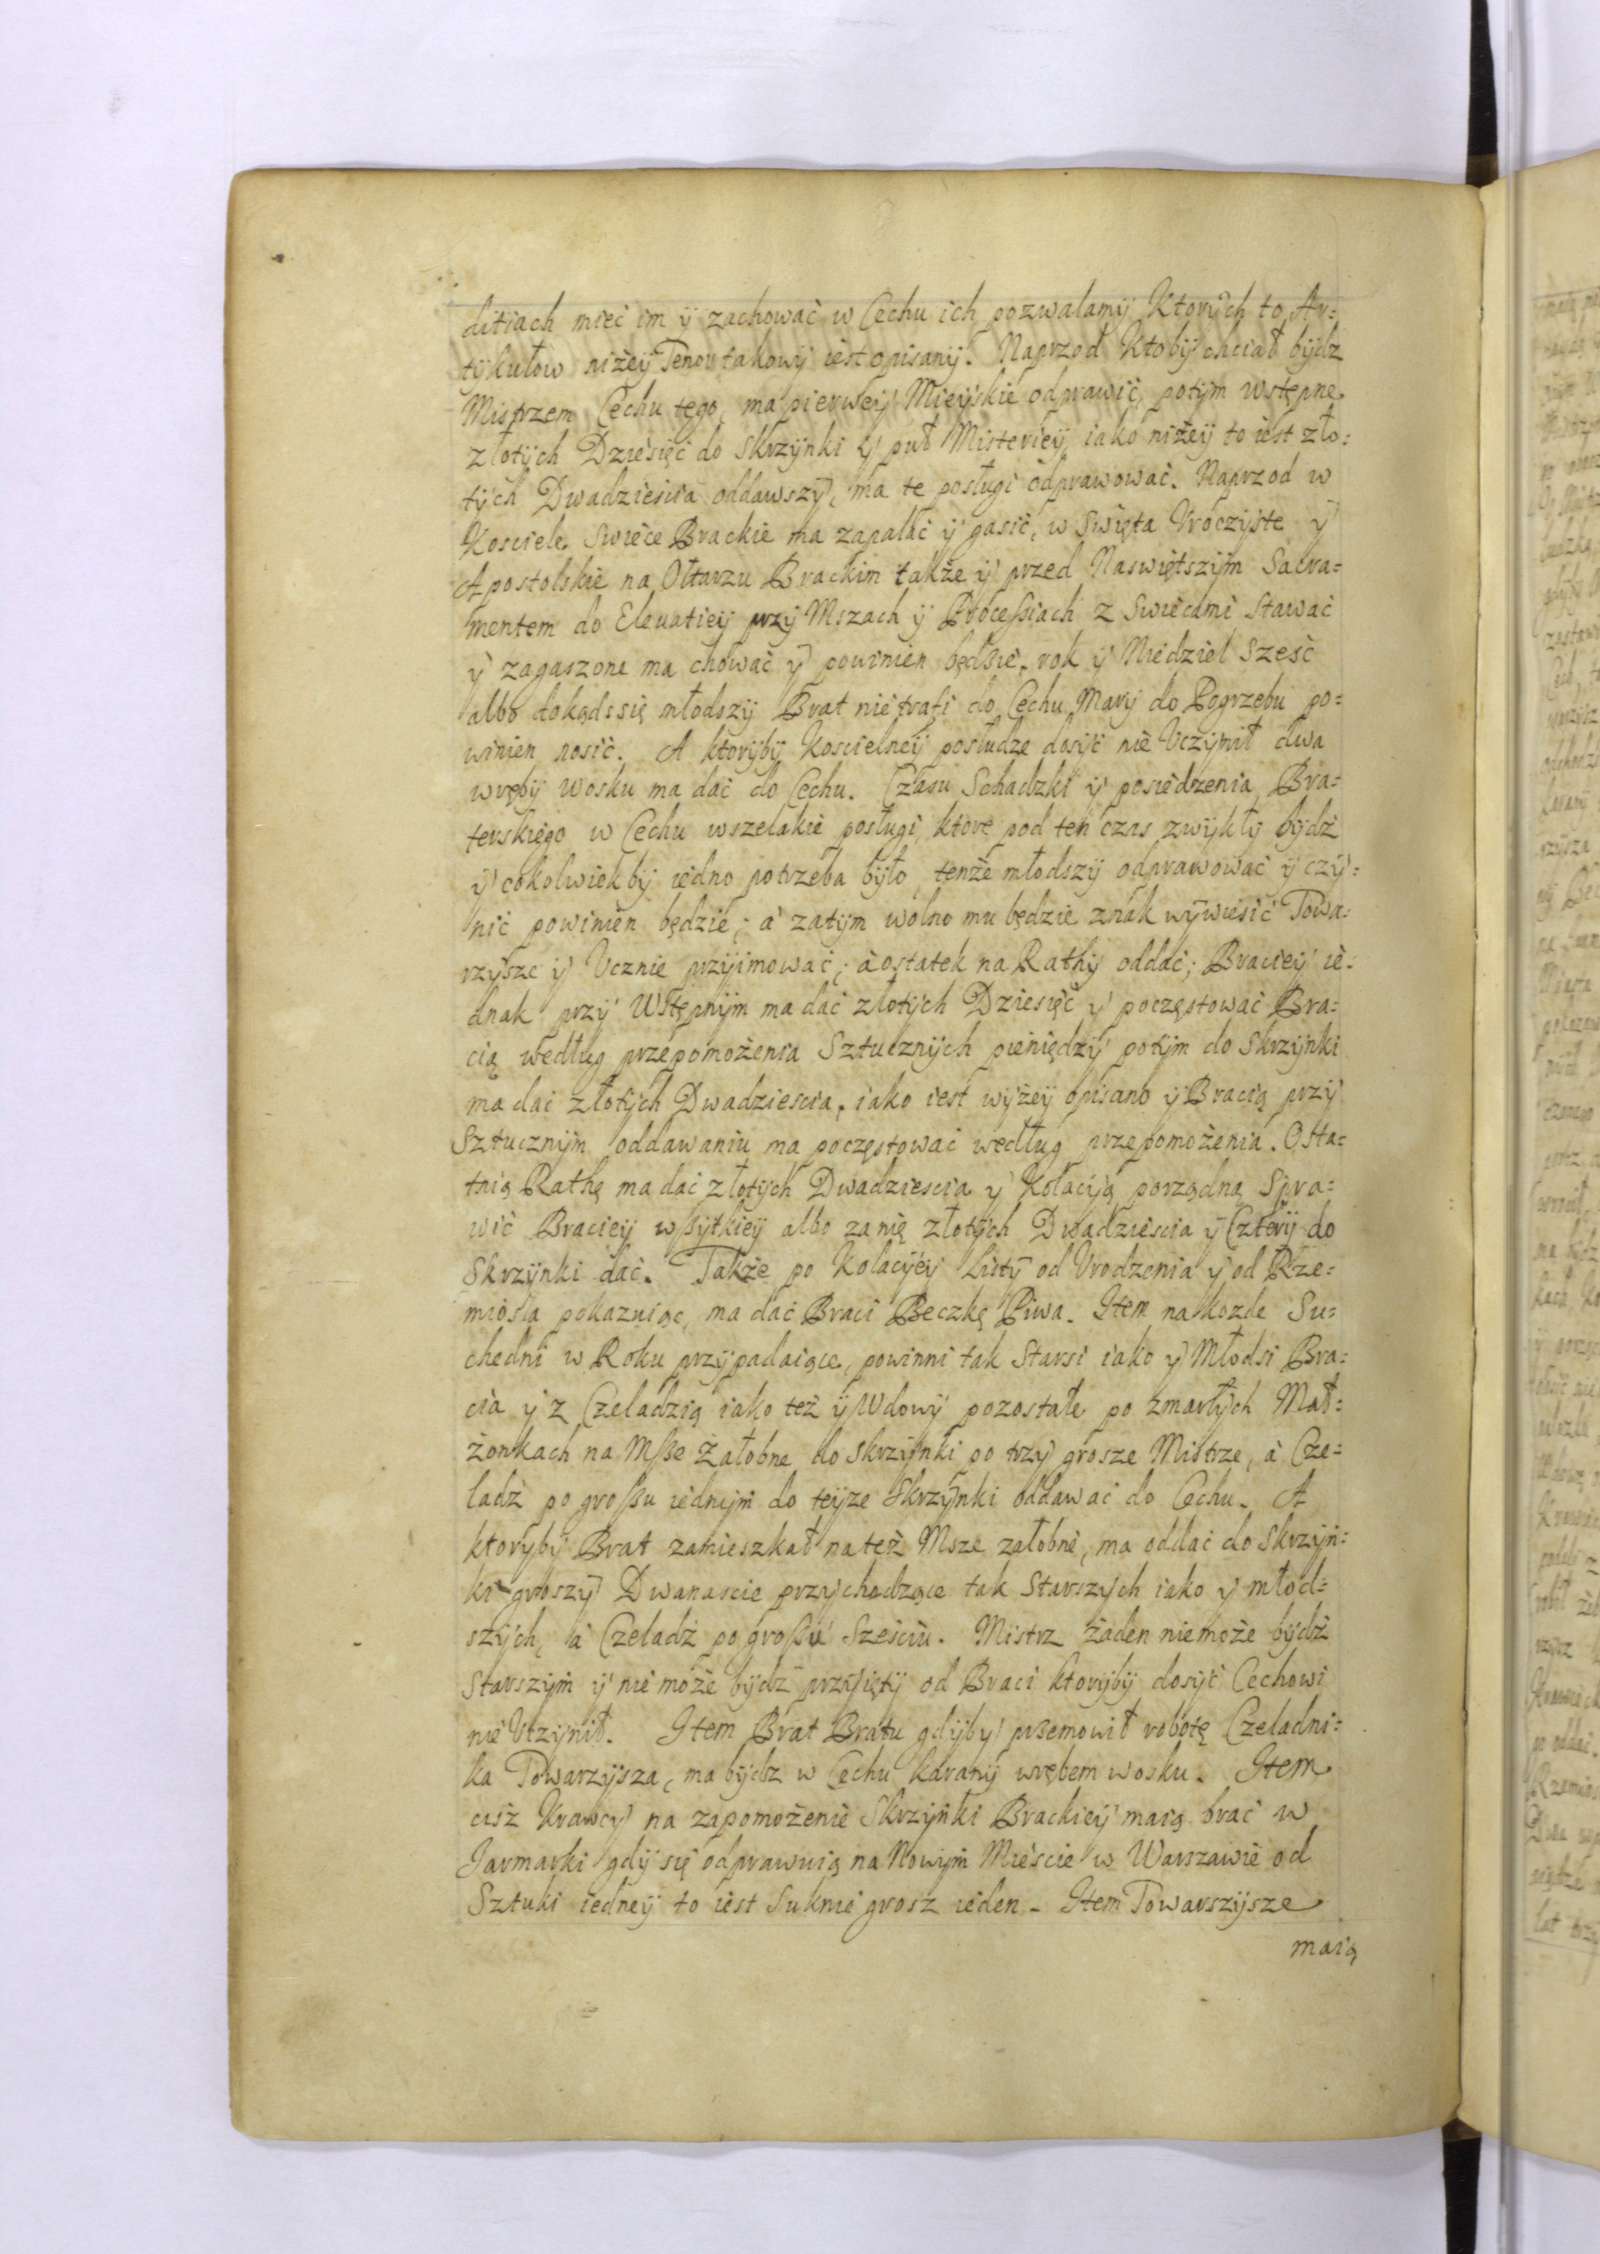 ditiach mieć im ÿ zachować w Cechu ich pozwalamÿ Ktorÿch to Ar=
tÿkułow niżeÿ Tenor takowÿ iest opisanÿ. Naprzod Ktobÿ chciał bÿdz
Mistrzem Cechu tego, ma pierweÿ Mieÿskie odprawić, potÿm wstępne
złotÿch Dziesięć do Skrzÿnki ÿ puł Misterieÿ iako niżeÿ to iest zło=
tÿch Dwadziescia oddawszÿ, ma te posługi odprawować. Naprzod w
Kosciele Swiece Brackie ma zapalać ÿ gasić, w Swięta Vroczÿste ÿ
Apostolskie na Ołtarzu Brackim także ÿ przed Naswiętszÿm Sacra=
mentem do Eleuatieÿ przÿ Mszach ÿ Processiach z Swiecami Stawać
ÿ zagaszone ma chować ÿ powinien będzie. rok ÿ Niedziel Szesć
albo dokądssię młodszÿ Brat nie trafi do Cechu Marÿ do Pogrzebu po=
winien nosić. A ktorÿbÿ Koscielneÿ posłudze dosÿć nie Vczÿnił dwa
wrębÿ Wosku ma dać do Cechu. Czasu Schadzki ÿ posiedzenia Bra=
terskiego w Cechu wszelakie posługi, ktore pod ten czas zwÿkłÿ bÿdź
ÿ cokolwiekbÿ iedno potrzeba bÿło, tenże młodszÿ odprawować ÿ czÿ=
nić powinien będzie; à zatÿm wolno mu będzie znak wÿwiesić Towa=
rzÿsze ÿ Vcznie przÿimować; à ostatek na Rathÿ oddać; Bracieÿ ie=
dnak przÿ Wstępnÿm ma dać złotÿch Dziesięć ÿ poczęstować Bra=
cią według przepomożenia Sztucznÿch pieniędzÿ potÿm do Skrzÿnki
ma dać złotÿch Dwadziescia, iako iest wÿżeÿ opisano ÿ Bracią przÿ
Sztucznÿm oddawaniu ma poczęstować według przepomożenia. Osta=
tnią Rathę ma dać złotÿch Dwadziescia ÿ Kolaciją porządną Spra=
wić Bracieÿ wszÿtkieÿ albo za nię złotÿch Dwadziescia ÿ Czterÿ do
Skrzÿnki dać. Także po Kolacÿeÿ Listÿ od Vrodzenia ÿ od Rze=
miosła pokazuiąc, ma dać Braci Beczkę Piwa. Item na kozde Su=
chedni w Roku przÿpadaiące, powinni tak Starsi iako ÿ Młodsi Bra=
cia ÿ z Czeladzią iako też ÿ Wdowÿ pozostałe po zmarłÿch Mał=
żonkach na Msze Żałobne do Skrzÿnki po trzÿ grosze Mistrze, à Cze=
ladż po groszu iednÿm do teÿze Skrzÿnki oddawać do Cechu. A
ktorÿbÿ Brat zamieszkał na też Msze załobne, ma oddać do Skrzÿn=
ki groszÿ Dwanascie przÿchodzące tak Starszÿch iako ÿ młod=
szÿch, à Czeladż po groszu Szesciu. Mistrz żaden niemoże bÿdż
Starszÿm ÿ nie może bÿdż przÿiętÿ od Braci ktorÿbÿ dosÿć Cechowi
nie Vczÿnił. Item Brat Bratu gdÿbÿ przemowił robotę Czeladni=
ka Towarzÿsza, ma bÿdz w Cechu karanÿ wrębem wosku. Item
ciż Krawcÿ na zapomożenie Skrzÿnki Brackieÿ maią brać w
Jarmarki gdÿ się odprawuią na Nowÿm Miescie w Warszawie od
Sztuki iedneÿ to iest Suknie grosz ieden. Item Towarszÿsze
maią